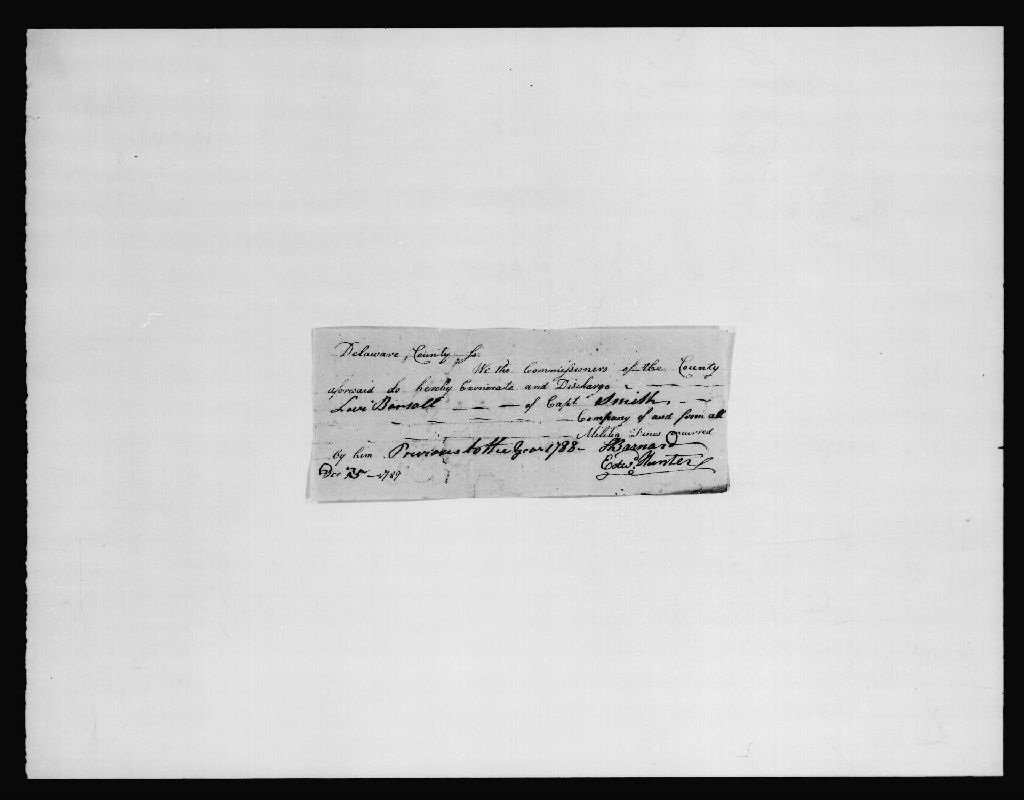 Delaware County ss.
We the Commissioners of the County
aforesaid do hereby Exonerate and Discharge
Levi Bonsall — — — of Capt Smith
Company of and from all
Militia Fines incurred
by him Previous to the Year 1788 - Barnard
Edwd Hunter
Dec 25 - 1789